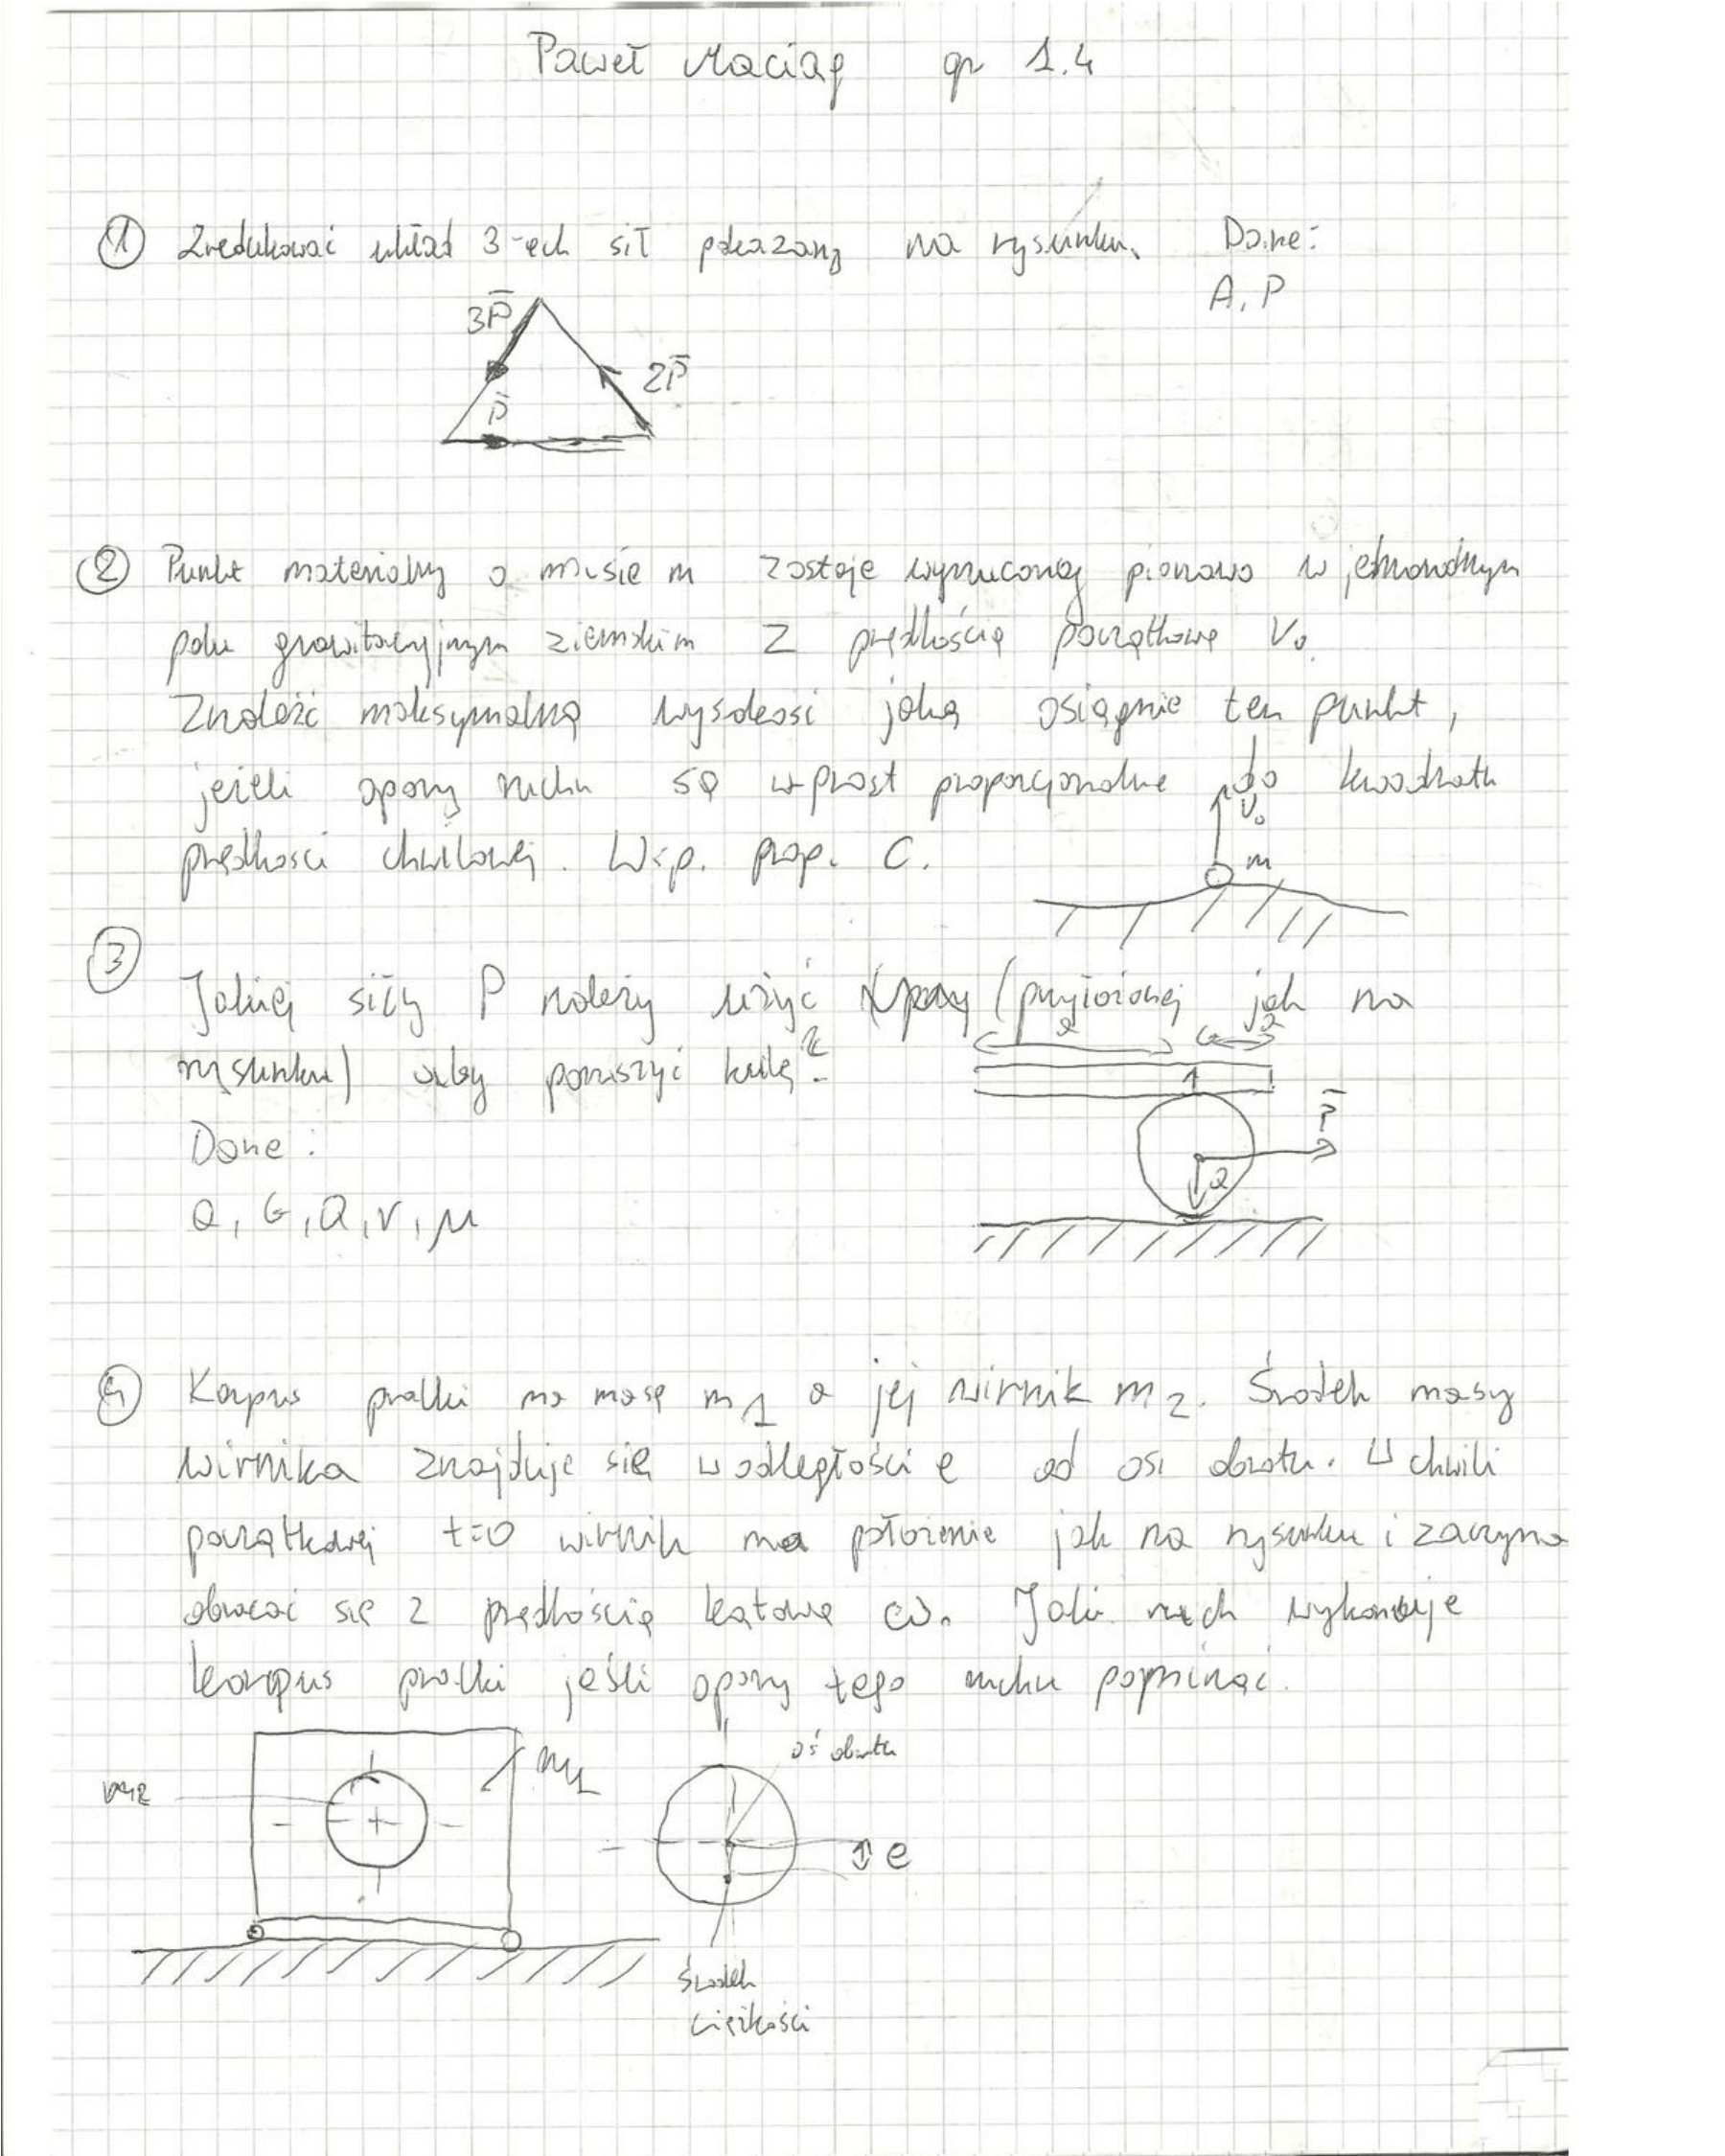 Paweł Maciąg gr 1.4
① Zredukować układ 3-ech sił pokazany na rysunku. Dane:
A, P
3P̄
2P̄
P̄
② Punkt materialny o masie m zostaje wyrzucony pionowo w jednorodnym
polu grawitacyjnym ziemskim z prędkością początkową V₀.
Znaleźć maksymalną wysokość jaką osiągnie ten punkt,
jeżeli opory ruchu są wprost proporcjonalne do kwadratu
V₀
prędkości chwilowej. Wsp. prop. C.
m
③
Jakiej siły P należy użyć (przyłożonej jak na
rysunku) aby poruszyć kulę?
P̄
Dane:
Q
Q, G, a, r, μ
④ Korpus pralki ma masę m1 a jej wirnik m2. Środek masy
wirnika znajduje się w odległości e od osi obrotu. W chwili
początkowej t=0 wirnik ma położenie jak na rysunku i zaczyna
obracać się z prędkością kątową ω. Jaki ruch wykonuje
korpus pralki jeśli opory tego ruchu pominąć.
oś obrotu
m1
m2
e
Środek
ciężkości